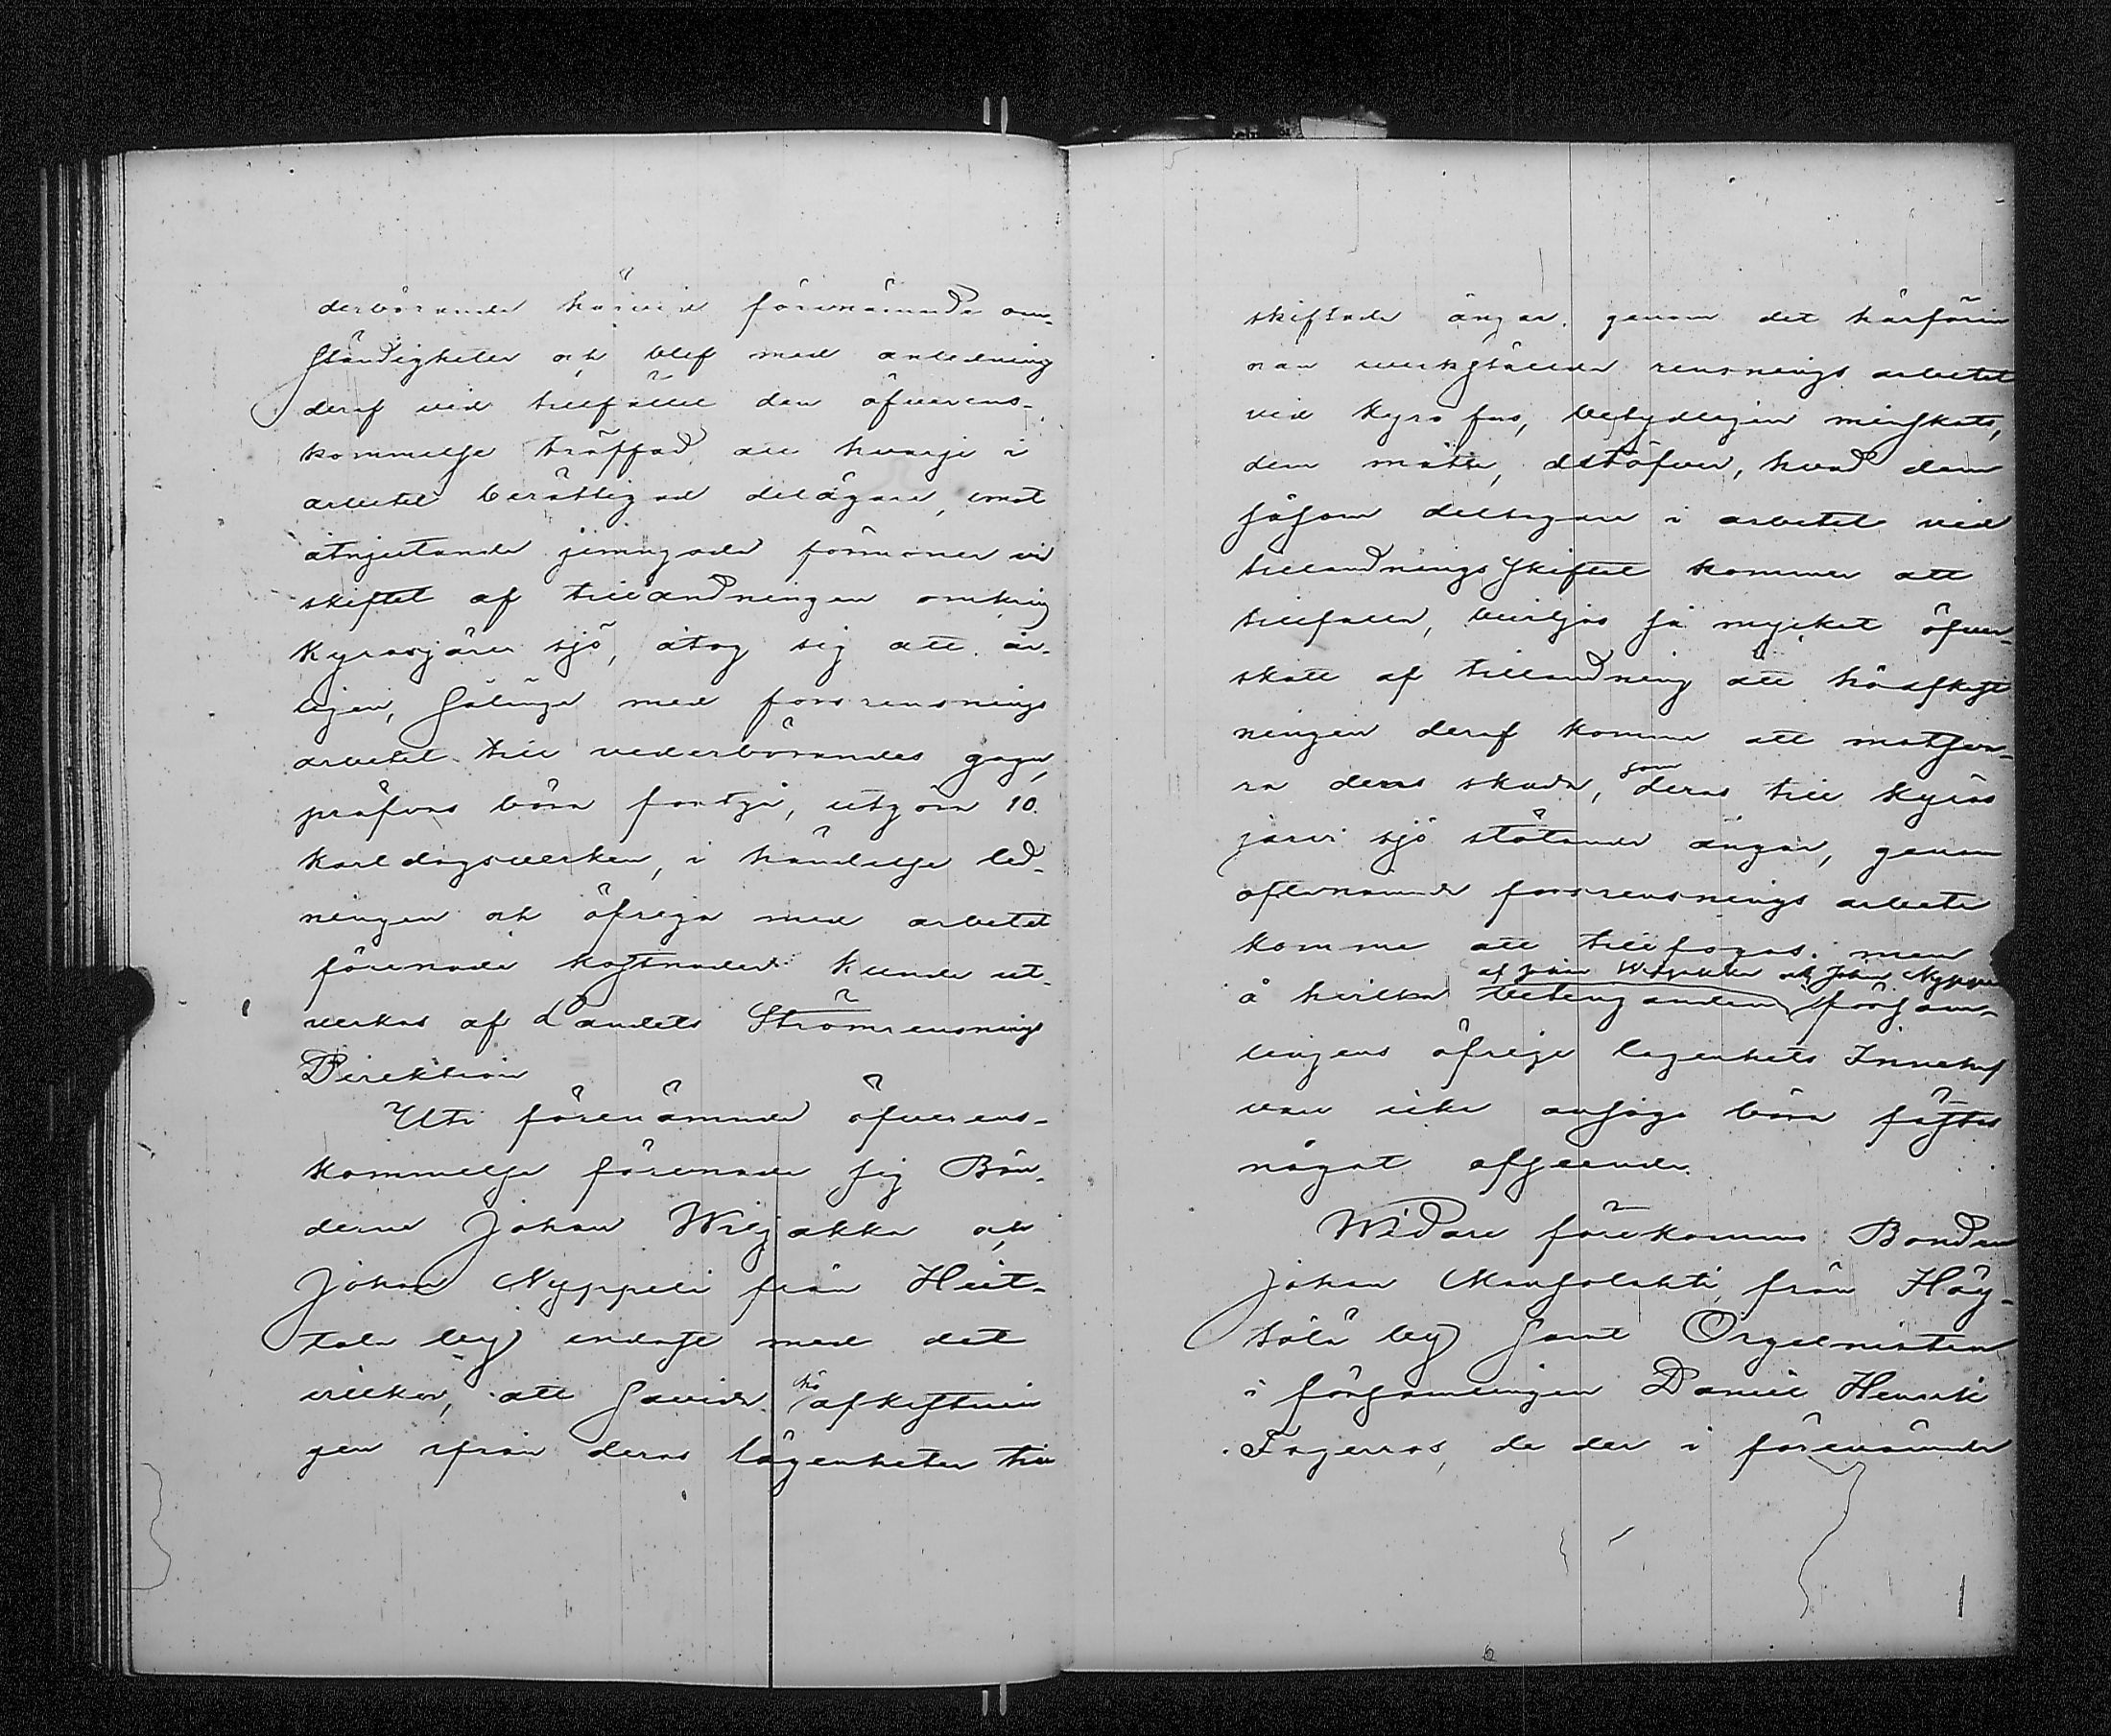 derbörande härvid förenämnde om-
ständigheter och blef med anledning
deraf vid tillfället den öfverens-
kommelse träffad att hvarje i
arbetet berättigad delägare, emot
åtnjutande jemngoda förmoner vid
skiftet af tillandningen omkring
Kyrösjärvi sjö, åtog sig att år-
ligen, sålänge med forsrensnings
arbetet till vederbörandes gagn,
pröfvas böra fortgå, utgöra 10.
karldagsverken, i händelse led-
ningen och öfriga med arbetet
förenade kostnader kunde ut-
verkas af Landets Strömrensnings
Direktion
Uti förenämnde öfverens-
kommelse förenade sig Bön-
derne Johan Wiljakka och
Johan Nyppeli från Heit-
tola by endast med det
vilkor, att savida hö afkastnin
gen ifrån deras lägenheter till
skiftade ängar genom det härförin
nan verkstälda rensnings arbetet
vid Kyrofors, betydligen minskats,
dem måtte, utöfver, hvad dem
såsom deltagare i arbetet vid
tillandnings skiftet kommer att
tillfalla, beviljas så mycket öfver-
skott af tillandning att höafkast
ningen deraf komme att motsva-
ra deras skada, som deras till Kyrös
järvi sjö stötande ängar, genom
oftanämnde forsrensnings arbete
komme att tillfogas. men
af Johan Wiljakka och Johan Nyppeli
å hvilka betinganden försam-
lingens öfrige lägenhets Innehaf
vare icke ansågo böra fästas
något afseende.
Widare förekommo Bonden
Johan Mansolahti från Höy-
tölä by samt Orgelnisten
i församlingen Daniel Henrik
Fagerroos, de der i förenämnde